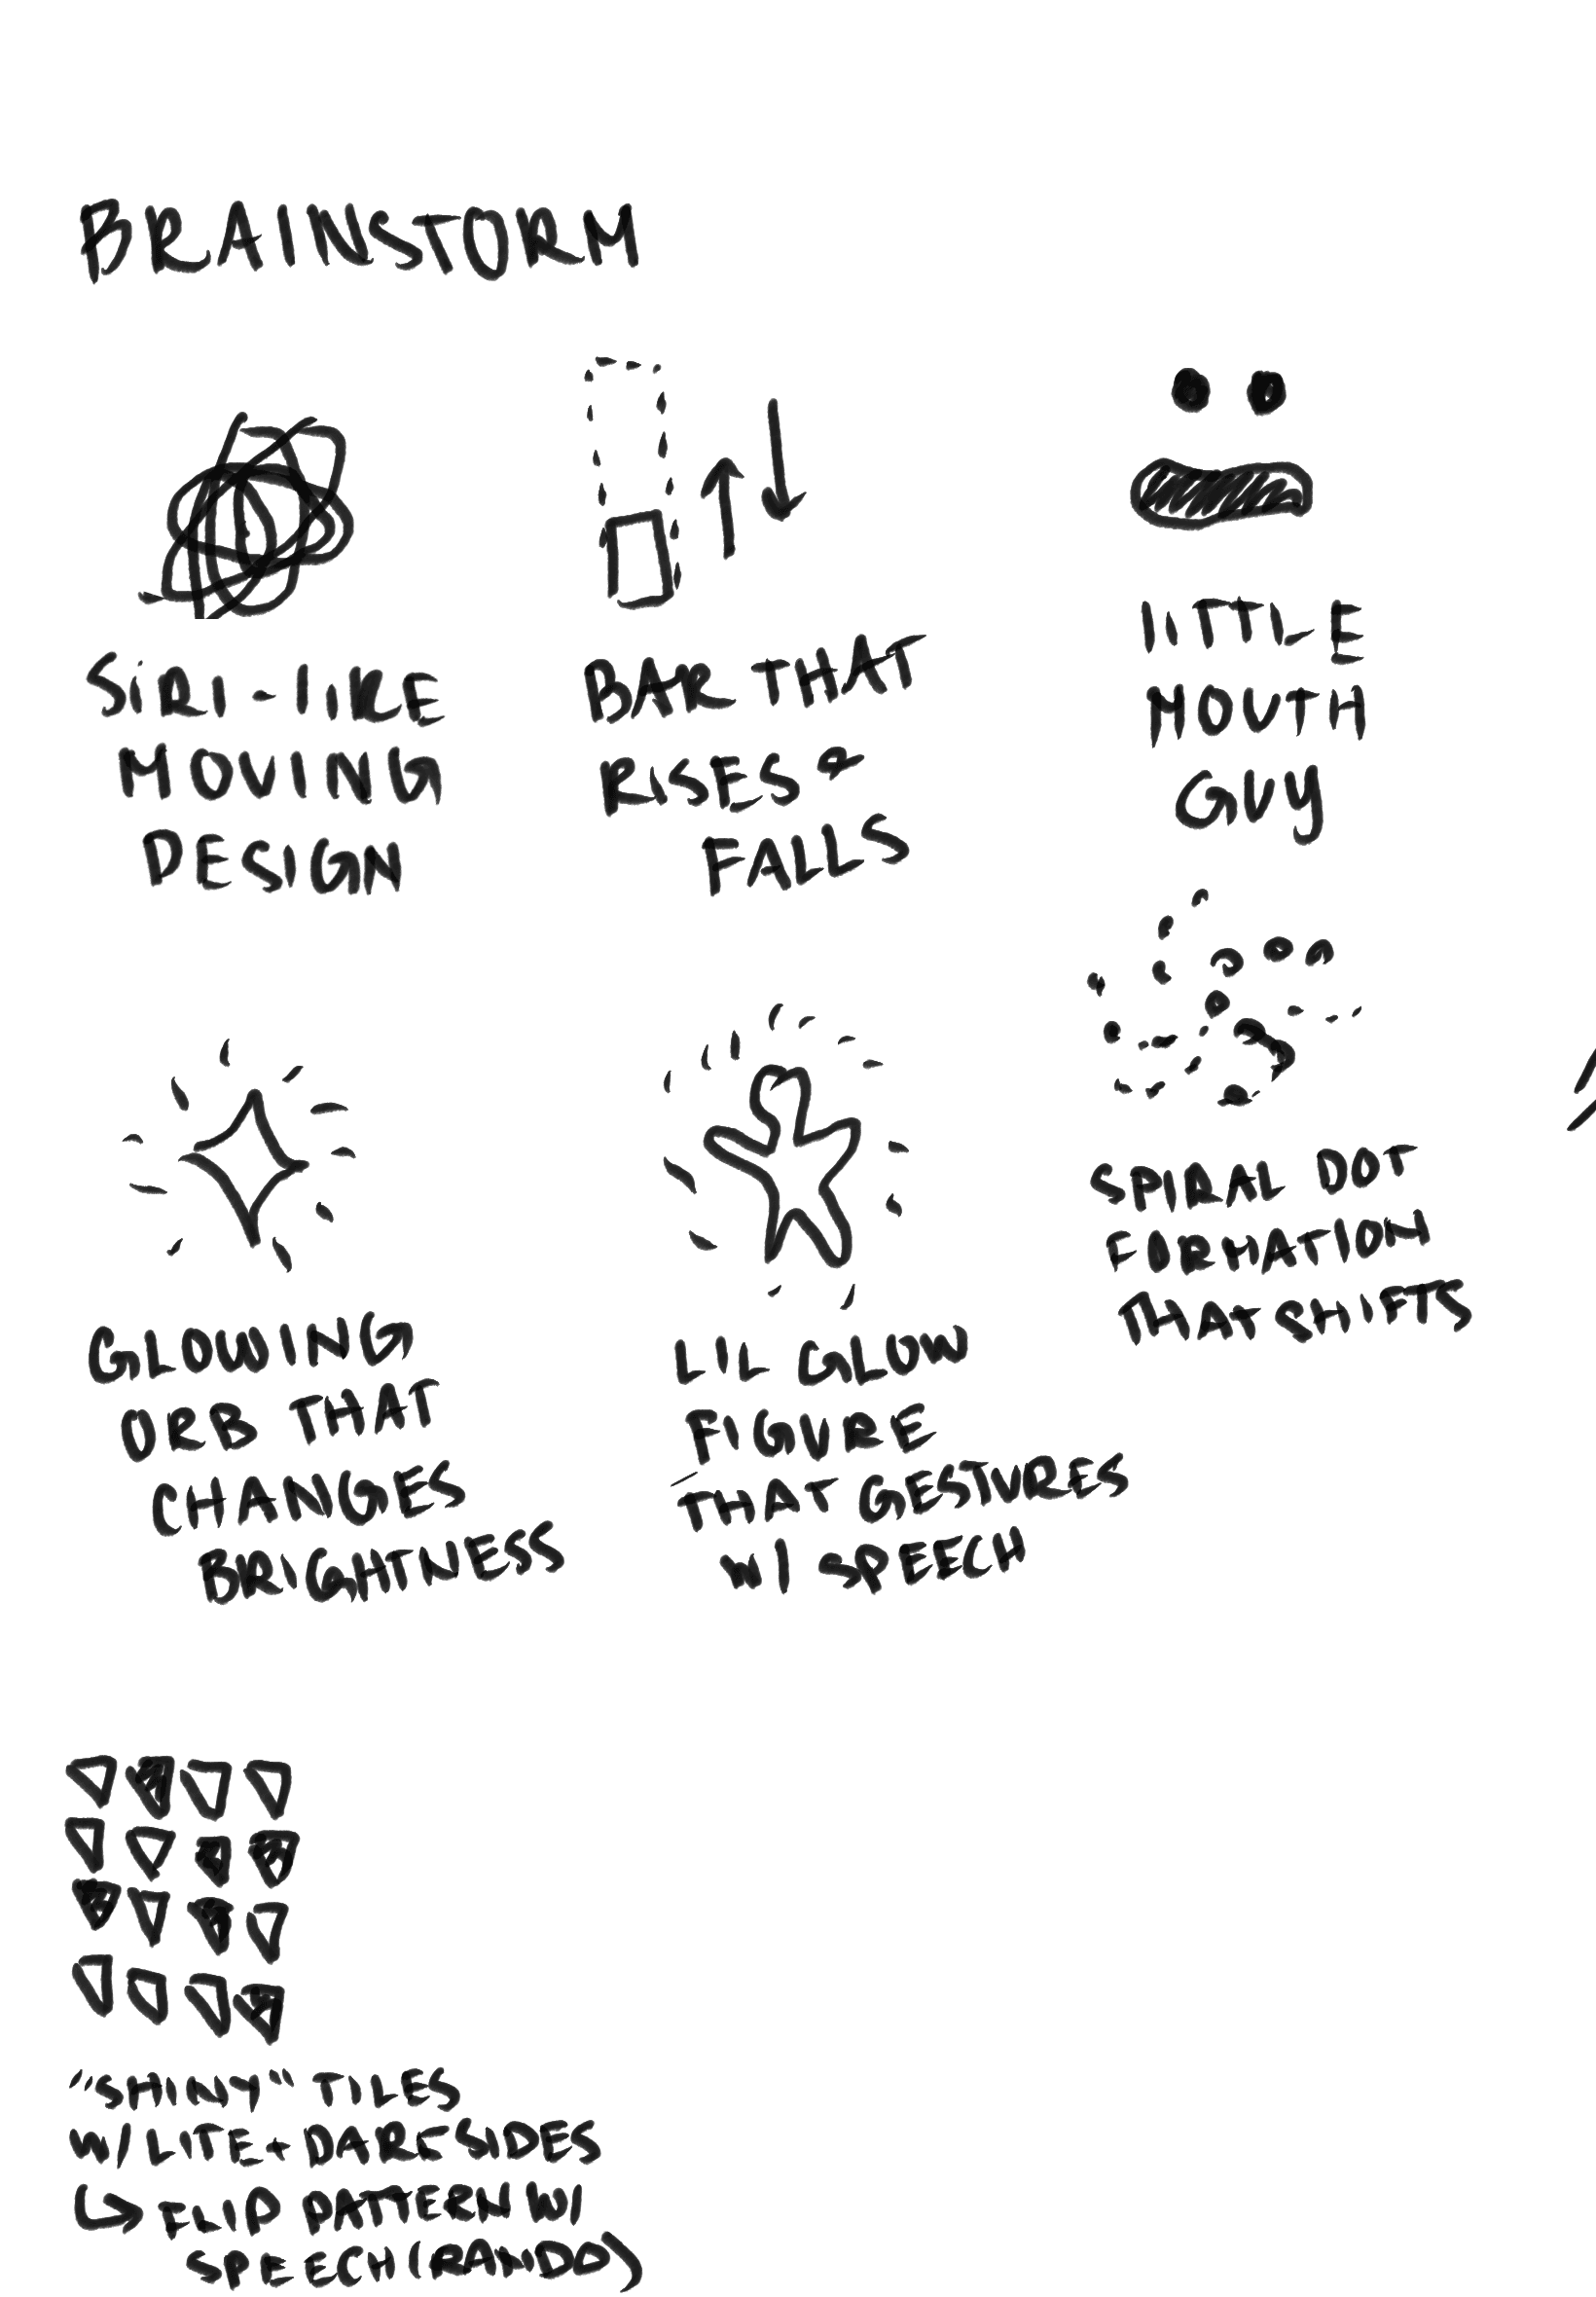 BRAINSTORM
SIRI-LIKE
MOVING
DESIGN
BAR THAT
RISES &
FALLS
LITTLE
MOUTH
GUY
GLOWING
ORB THAT
CHANGES
BRIGHTNESS
LIL GLOW
FIGURE
THAT GESTURES
W/ SPEECH
SPIRAL DOT
FORMATION
THAT SHIFTS
"SHINY" TILES
W/ LITE + DARK SIDES
↳ FLIP PATTERN W/
SPEECH (RANDO)